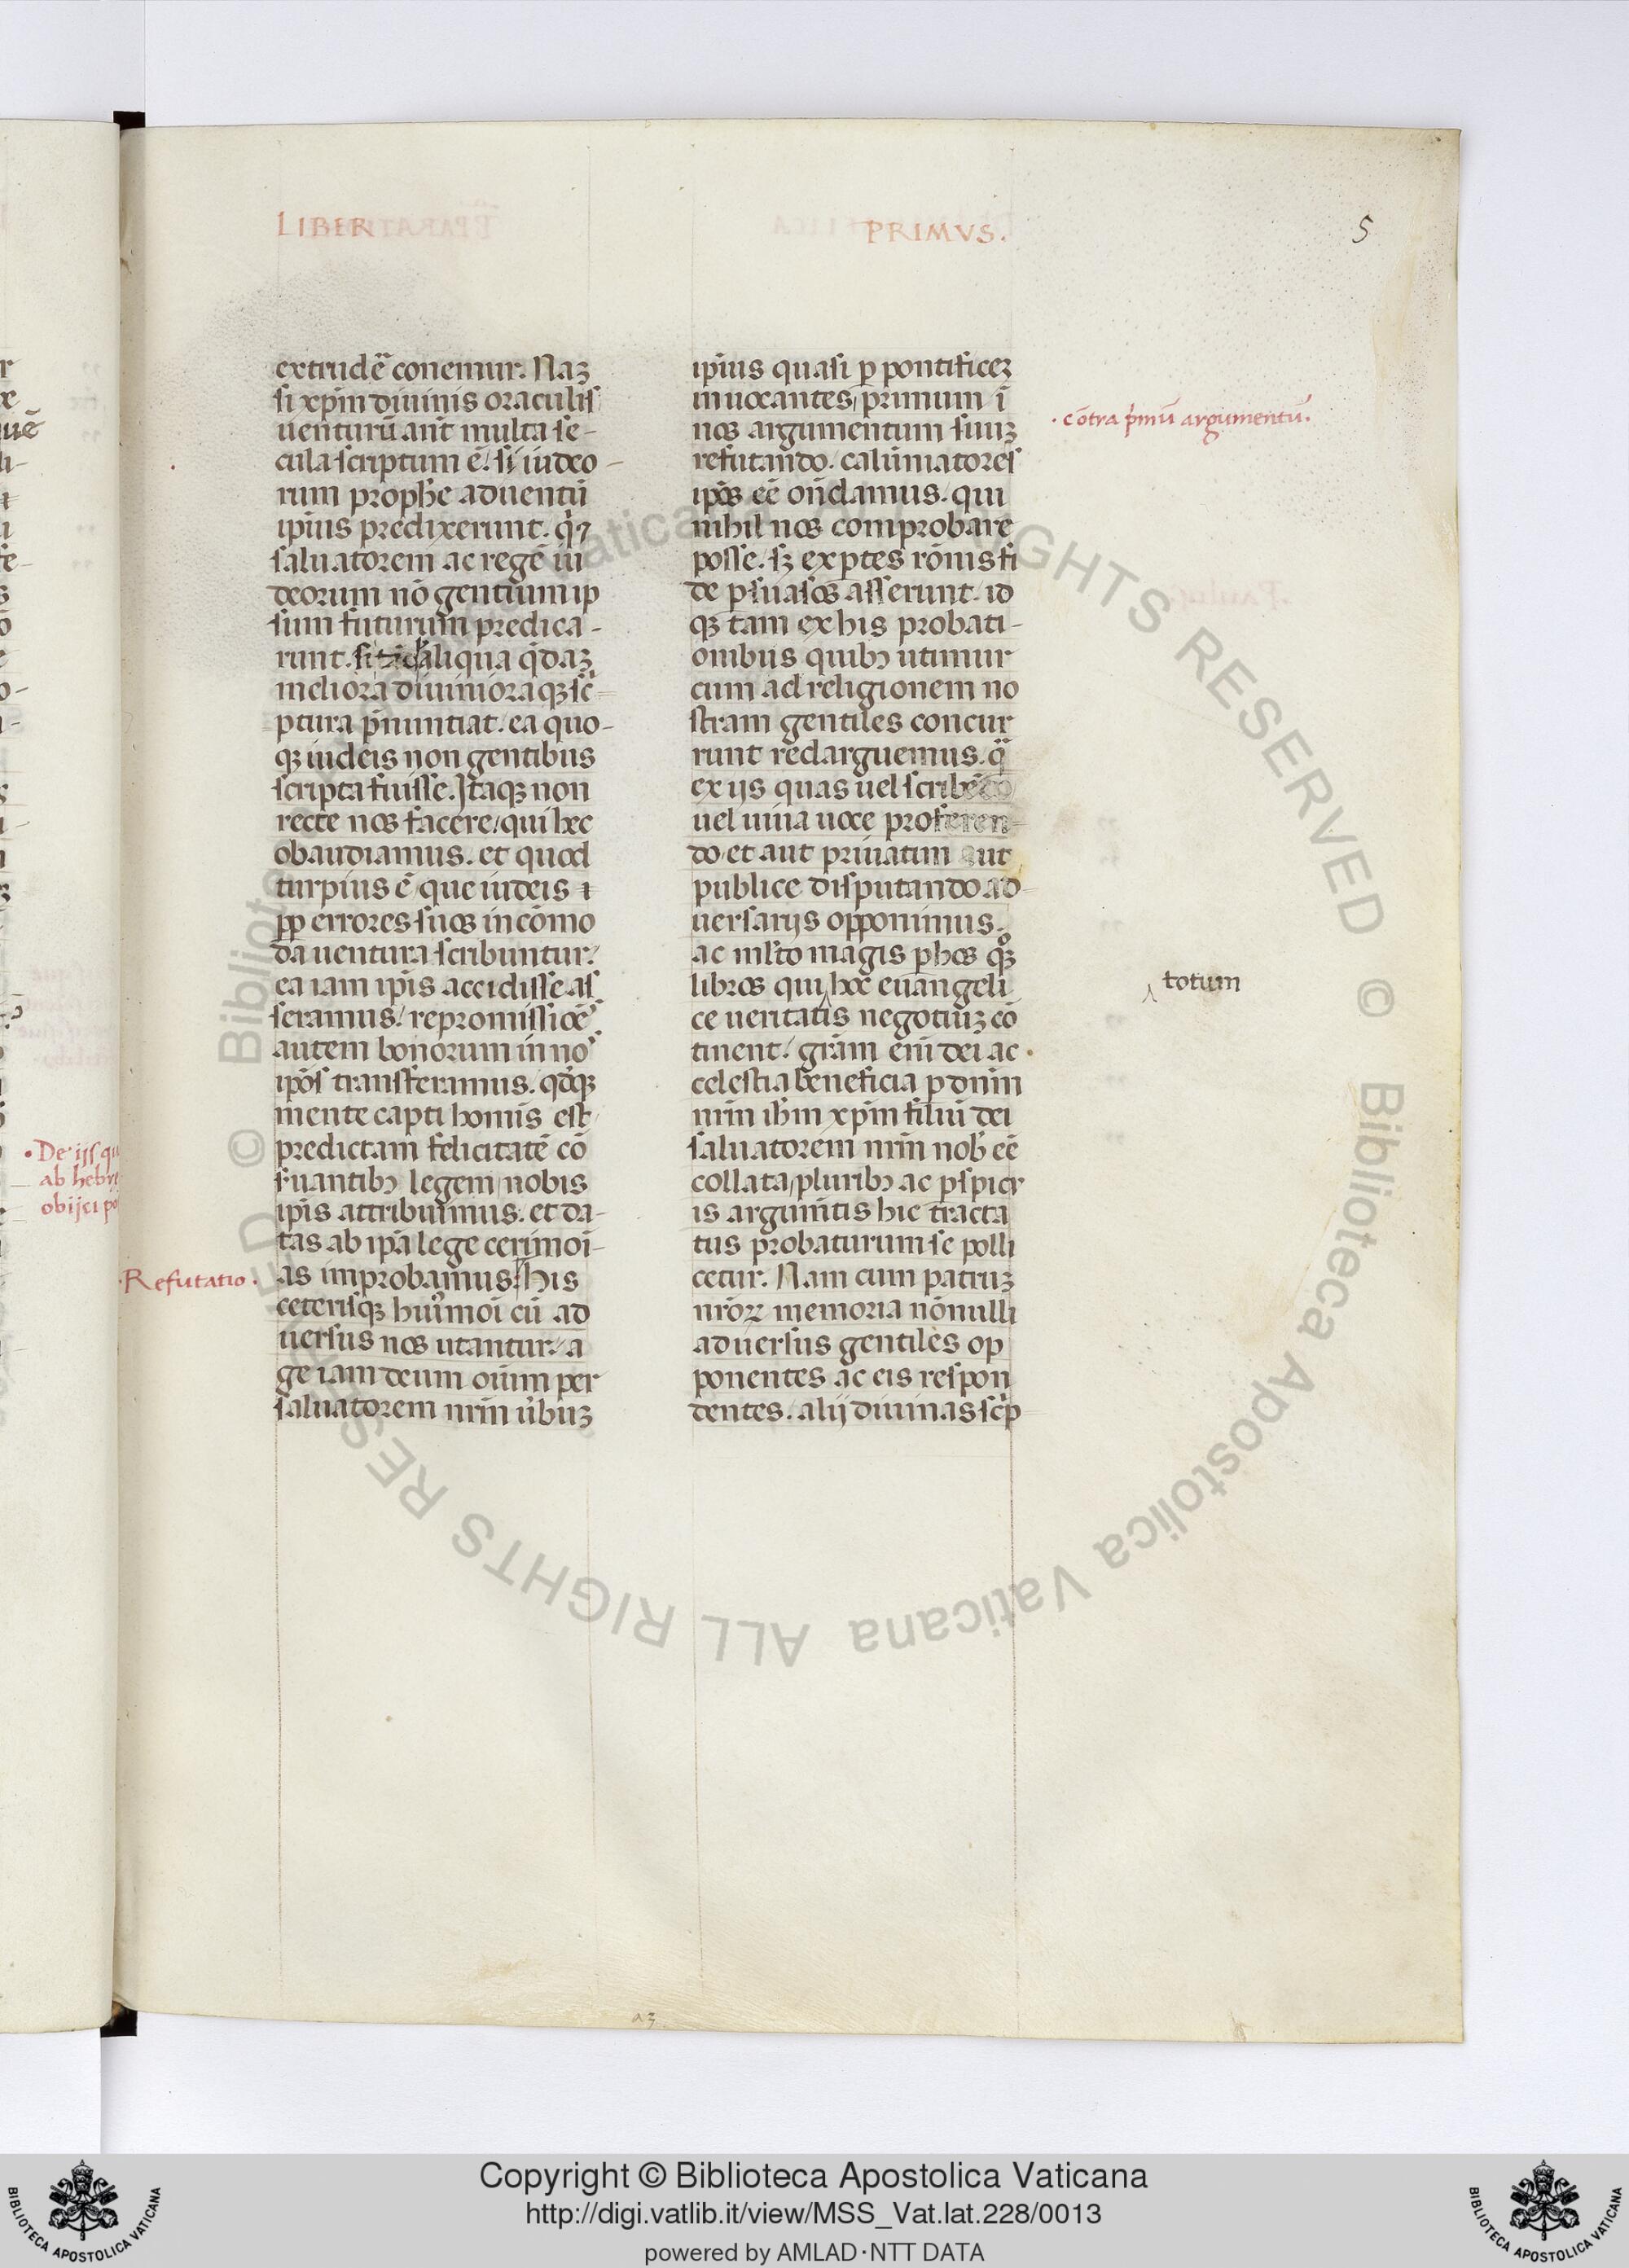 LIBER PRIMVS.
5
extrudē conemur. Naꝫ
si xp̄m diuinis oraculis
uenturū ant̄ multa se-
cula scriptum ē. si iudeo-
rum prophe aduentū
ipius predixerunt. q
saluatorem ac regē iu
deorum nō gentium ip
sum futurum predica-
runt. si aliqua q̄daꝫ
meliora diuinioraqꝫ sc̄
ptura p̄nuntiat. ea quo-
qꝫ iudeis non gentibus
scripta fuisse. Itaqꝫ non
recte nos facere/ qui hec
obaudiamus. et quod
turpius ē/ que iudeis
pp errores suos incōmo
da uentura scribuntur/
ea iam ip̄is accidisse as
seramus/ repromissiōē
autem bonorum in no
ip̄os transferamus. qd̄qꝫ
mente capti homīs est/
predictam felicitatē cō
ẜuantibꝫ legem nobis
ip̄is attribuimus. et da-
tas ab ip̄a lege cerimoi-
as improbamus. His
ceterisqꝫ huiꝰmoi cū ad
uersus nos utantur. a
ge iam deum oīum per
saluatorem nr̄m ūbuꝫ
ipius quasi ꝑ pontificeꝫ
inuocantes, primum ī
nos argumentum suuꝫ
refutando. calūniatores
ip̄os eē on̄damus. qui
nihil nos comprobare
posse. sꝫ expertes rōnis fi
de ꝑsuasos asserunt. id
qꝫ tam ex his probati-
onibus quibꝫ utimur
cum ad religionem no
stram gentiles concur
runt redarguemus. q̄
ex ijs quas uel scribēdo
uel uiua uoce proferen-
do et aut priuatim aut
publice disputando ad-
uersarijs opponimus.
ac ml̄to magis ꝑ hos qꝫ
libros qui hoc euangeli
ce ueritatis negotiuꝫ cō
tinent. gram eni dei ac
celestia beneficia ꝑ dnm
nrm ihm xpm filiu dei
saluatorem nrm nob eē
collata, pluribꝫ ac ꝑspicu
is argumtis hic tracta
tus probaturum se polli
cetur. Nam cum patruꝫ
nr̄oꝝ memoria nōnulli
aduersus gentiles op
ponentes ac eis respon
dentes. alij diuinas scrip
· cōtra pmū argumentū.
totum
· De ijs qu
ab hebr
obijci po
· Refutatio ·
a3
Copyright © Biblioteca Apostolica Vaticana
http://digi.vatlib.it/view/MSS_Vat.lat.228/0013
powered by AMLAD·NTT DATA
BIBLIOTECA APOSTOLICA VATICANA
BIBLIOTECA APOSTOLICA VATICANA
© Biblioteca Apostolica Vaticana ALL RIGHTS RESERVED © Biblioteca Apostolica Vaticana ALL RIGHTS RESERVED